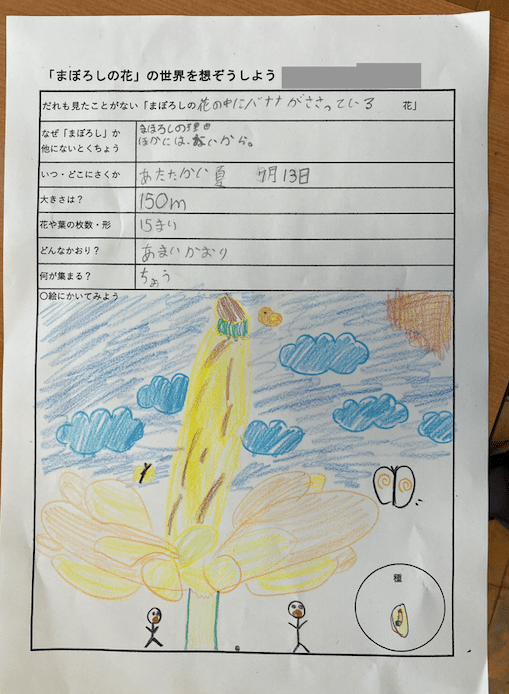 「まぼろしの花」の世界を想ぞうしよう
だれも見たことがない「まぼろしの 花の中にバナナがささっている 花」
なぜ「まぼろし」か
他にないとくちょう
まぼろしの理由
ほかには、ないから。
いつ・どこにさくか
あたたかい夏 7月13日
大きさは?
150m
花や葉の枚数・形
15まい
どんなかおり?
あまいかおり
何が集まる?
ちょう
〇絵にかいてみよう
種